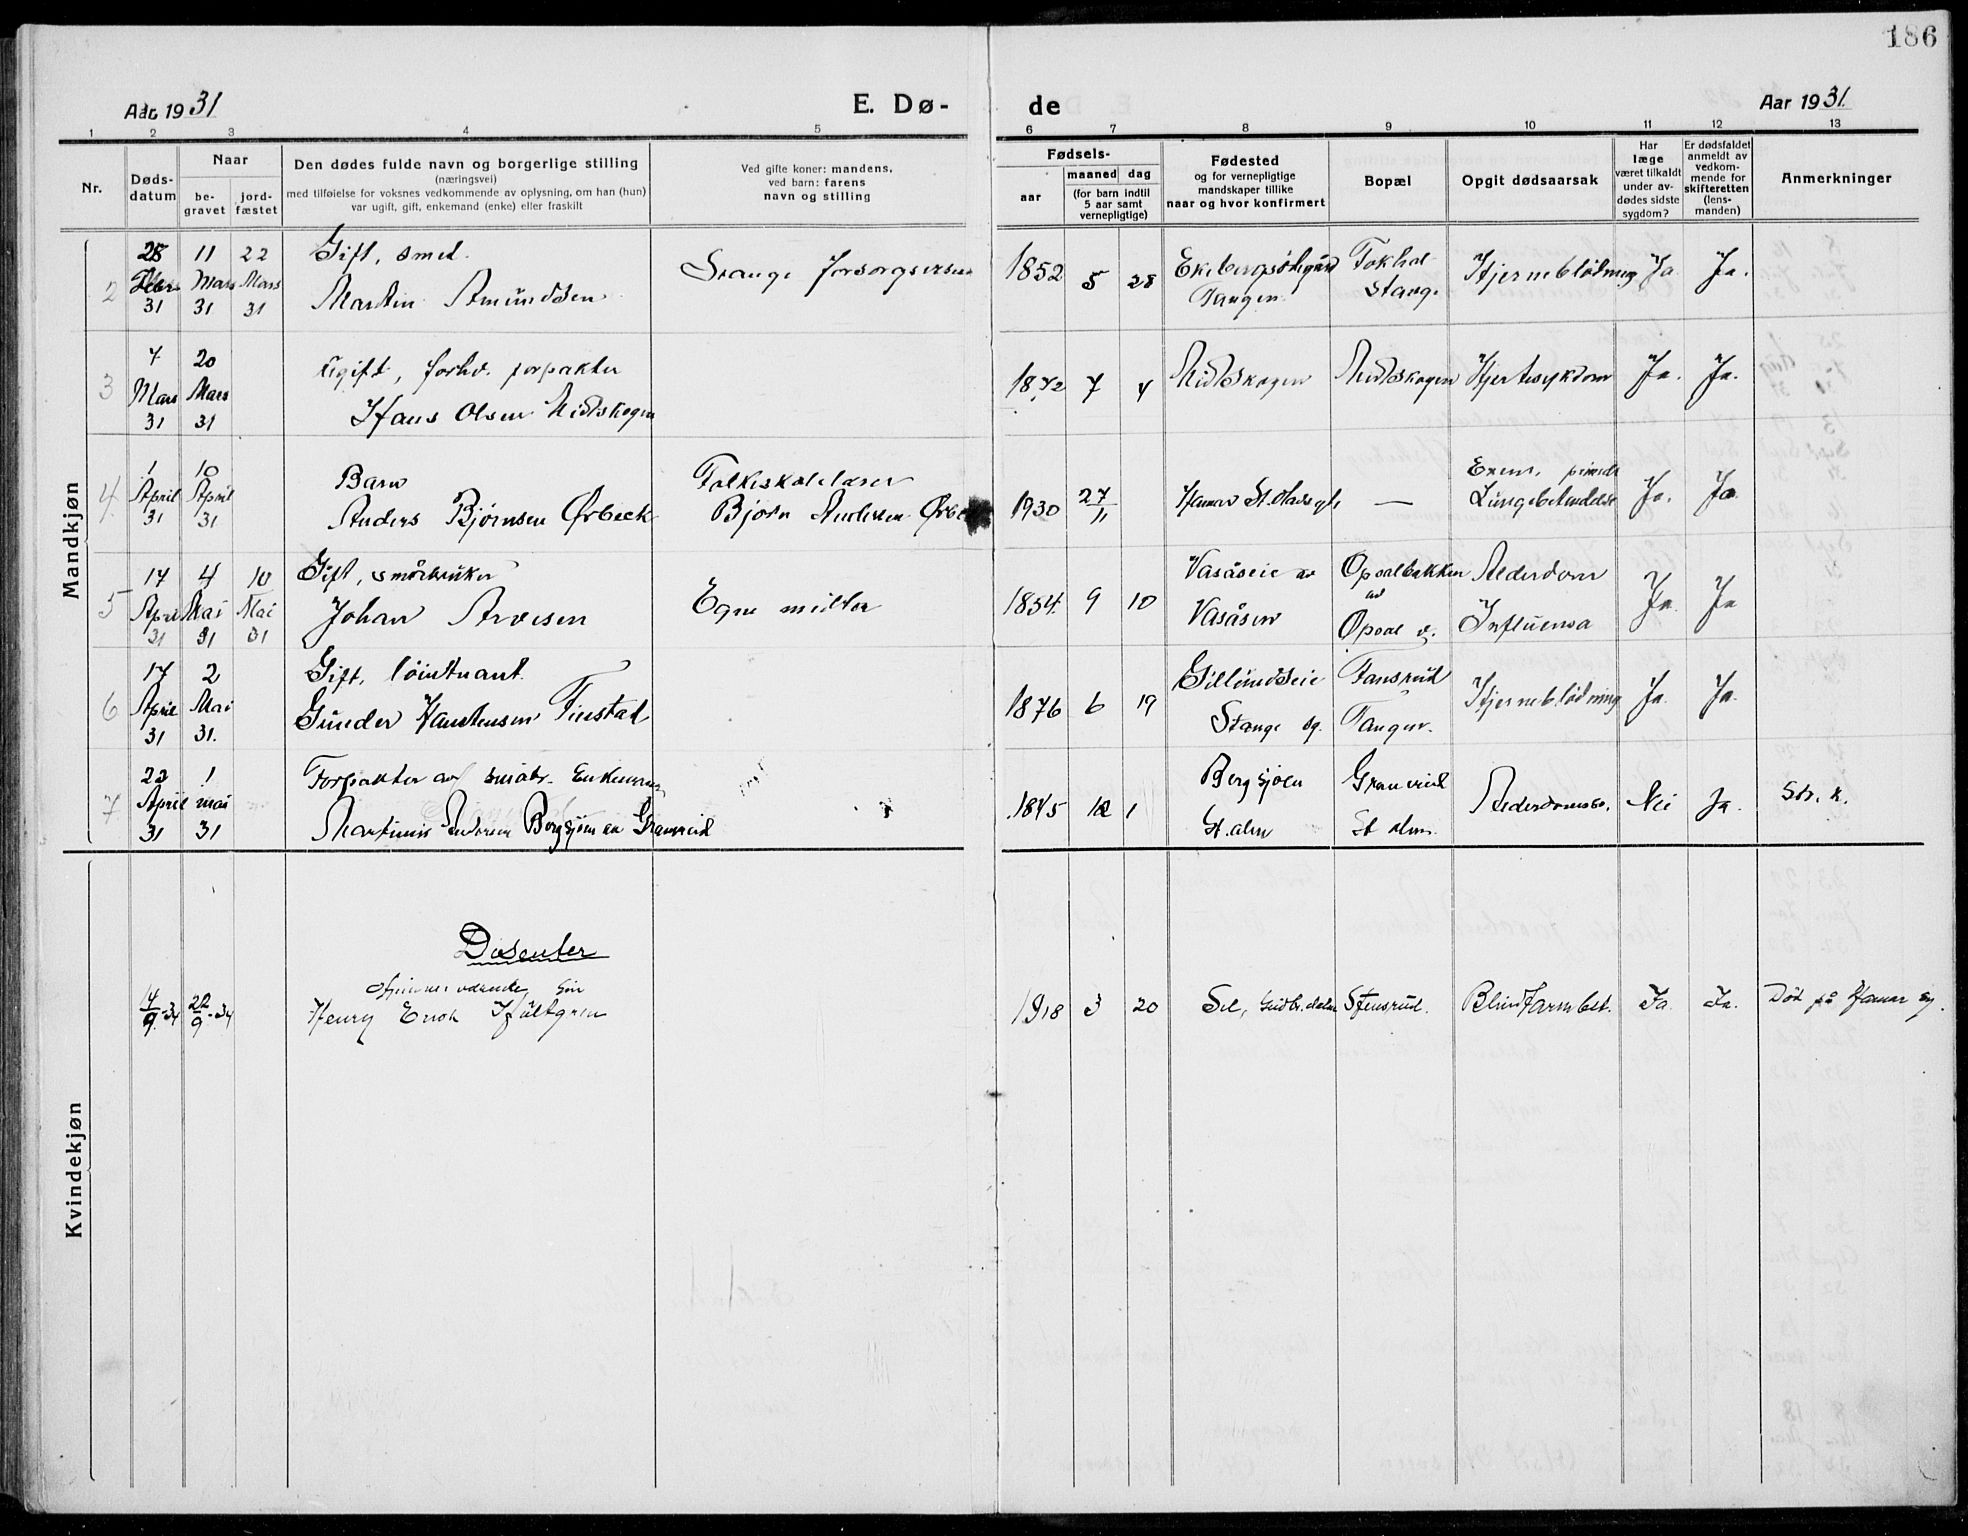 186
Aar 1931
E. Dø-
de
Aar 1931.
1 2 3 4 5 6 7 8 9 10 11 12 13
Nr.
Døds-
datum
Naar
be-
gravet
jord-
fæstet
Den dødes fulde navn og borgerlige stilling
(næringsvei)
med tilføielse for voksnes vedkommende av oplysning, om han (hun)
var ugift, gift, enkemand (enke) eller fraskilt
Ved gifte koner: mandens,
ved barn: farens
navn og stilling
Fødsels-
aar
maaned dag
(for barn indtil
5 aar samt
vernepligtige)
Fødested
og for vernepligtige
mandskaper tillike
naar og hvor konfirmert
Bopæl
Opgit dødsaarsak
Har
læge
været tilkaldt
under av-
dødes sidste
sygdom?
Er dødsfaldet
anmeldt av
vedkom-
mende for
skifteretten
(lens-
manden)
Anmerkninger
Mandkjøn
2
28
31
11
Mars
31
22
Mars
31
Gift, smed.
Martin Amundsen
Stange
1852 5 28
Tangen
Stange
Hjerneblødning Ja Ja.
3
7
Mars
31
20
Mars
31
Ugift, forh. forpakter
Hans Olsen Midtskogen
1872 7 4
Midtskogen Midtskogen Hjertesykdom Ja. Ja.
4
1
April
31
10
April
31
Barn
Anders Bjørnsen Ørbeck
Folkeskolelærer
Bjørn Andersen
1930 27/11
Hamar —
Lungebetendelse Ja. Ja.
5
17
April
31
4
Mai
31
10
Mai
31
Gift, småbruker
Johan Arvesen
Egne midler
1854. 9 10
Vasåseie av
Vasåsen
Opsalbakken
av
Opsal v.
Alderdom
Influensa
Ja. Ja
6
17
April
31
2
Mai
31.
Gift, løitnant.
Gunder Finstad
1876 6 19
Gillundseie
Stange sg.
Fansrud
Tangen.
Hjerneblødning Ja. Ja.
7
22
April
31
1
mai
31
Forpakter av småbr. Enkemann
Martinus Andersen Bergsjøen av Granerud
1845 12 1
Bergsjøen
St. alm
Granerud
St alm.
Alderdomssv. Nei Ja.
Kvindekjøn
Disenter
Hjemmeværende søn
Henry Enok Hultgren
4/9-34 22/9-34
1918 3 20
Sel, Gudbr.dalen Stensrud. Blindtarmbet. Ja. Ja. Død på Hamar sy.